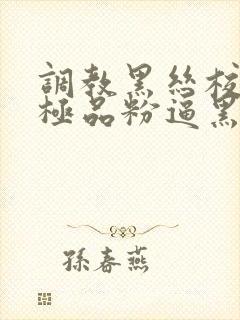 調教黑絲校
極品粉逼黑
孫春燕